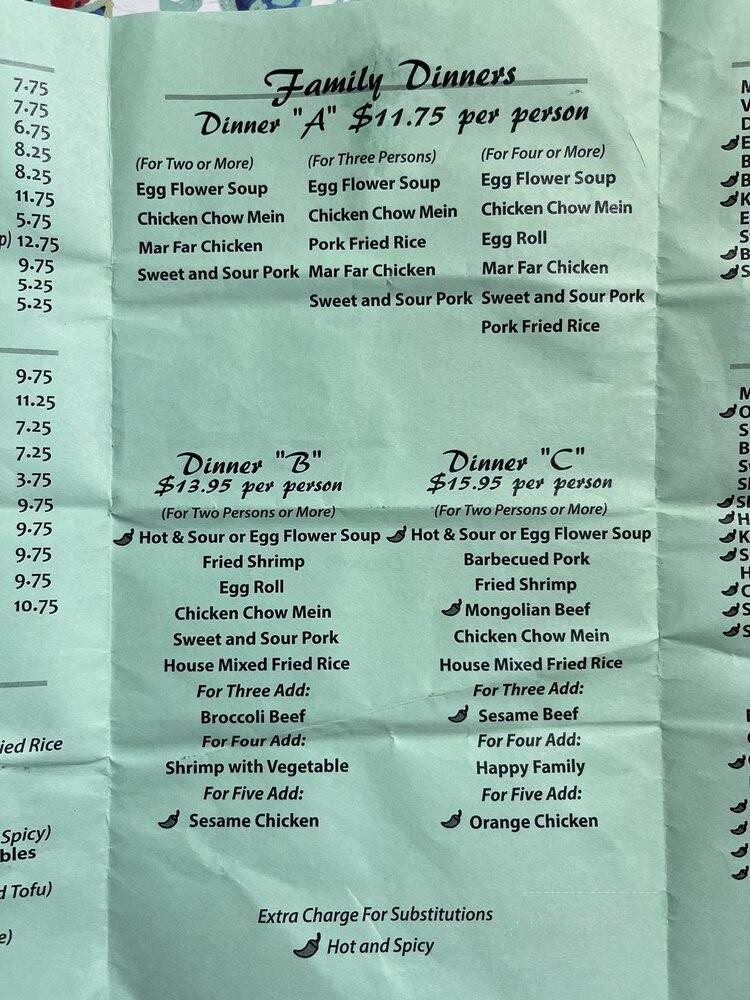 7.75
7.75
6.75
8.25
8.25
11.75
5.75
p) 12.75
9.75
5.25
5.25
9.75
11.25
7.25
7.25
3.75
9.75
9.75
9.75
9.75
10.75
ied Rice
Spicy)
bles
d Tofu)
e)
Family Dinners
Dinner "A" $11.75 per person
(For Two or More)
Egg Flower Soup
Chicken Chow Mein
Mar Far Chicken
Sweet and Sour Pork
(For Three Persons)
Egg Flower Soup
Chicken Chow Mein
Pork Fried Rice
Mar Far Chicken
Sweet and Sour Pork
(For Four or More)
Egg Flower Soup
Chicken Chow Mein
Egg Roll
Mar Far Chicken
Sweet and Sour Pork
Pork Fried Rice
Dinner "B"
$13.95 per person
(For Two Persons or More)
Hot & Sour or Egg Flower Soup
Fried Shrimp
Egg Roll
Chicken Chow Mein
Sweet and Sour Pork
House Mixed Fried Rice
For Three Add:
Broccoli Beef
For Four Add:
Shrimp with Vegetable
For Five Add:
Sesame Chicken
Dinner "C"
$15.95 per person
(For Two Persons or More)
Hot & Sour or Egg Flower Soup
Barbecued Pork
Fried Shrimp
Mongolian Beef
Chicken Chow Mein
House Mixed Fried Rice
For Three Add:
Sesame Beef
For Four Add:
Happy Family
For Five Add:
Orange Chicken
Extra Charge For Substitutions
Hot and Spicy